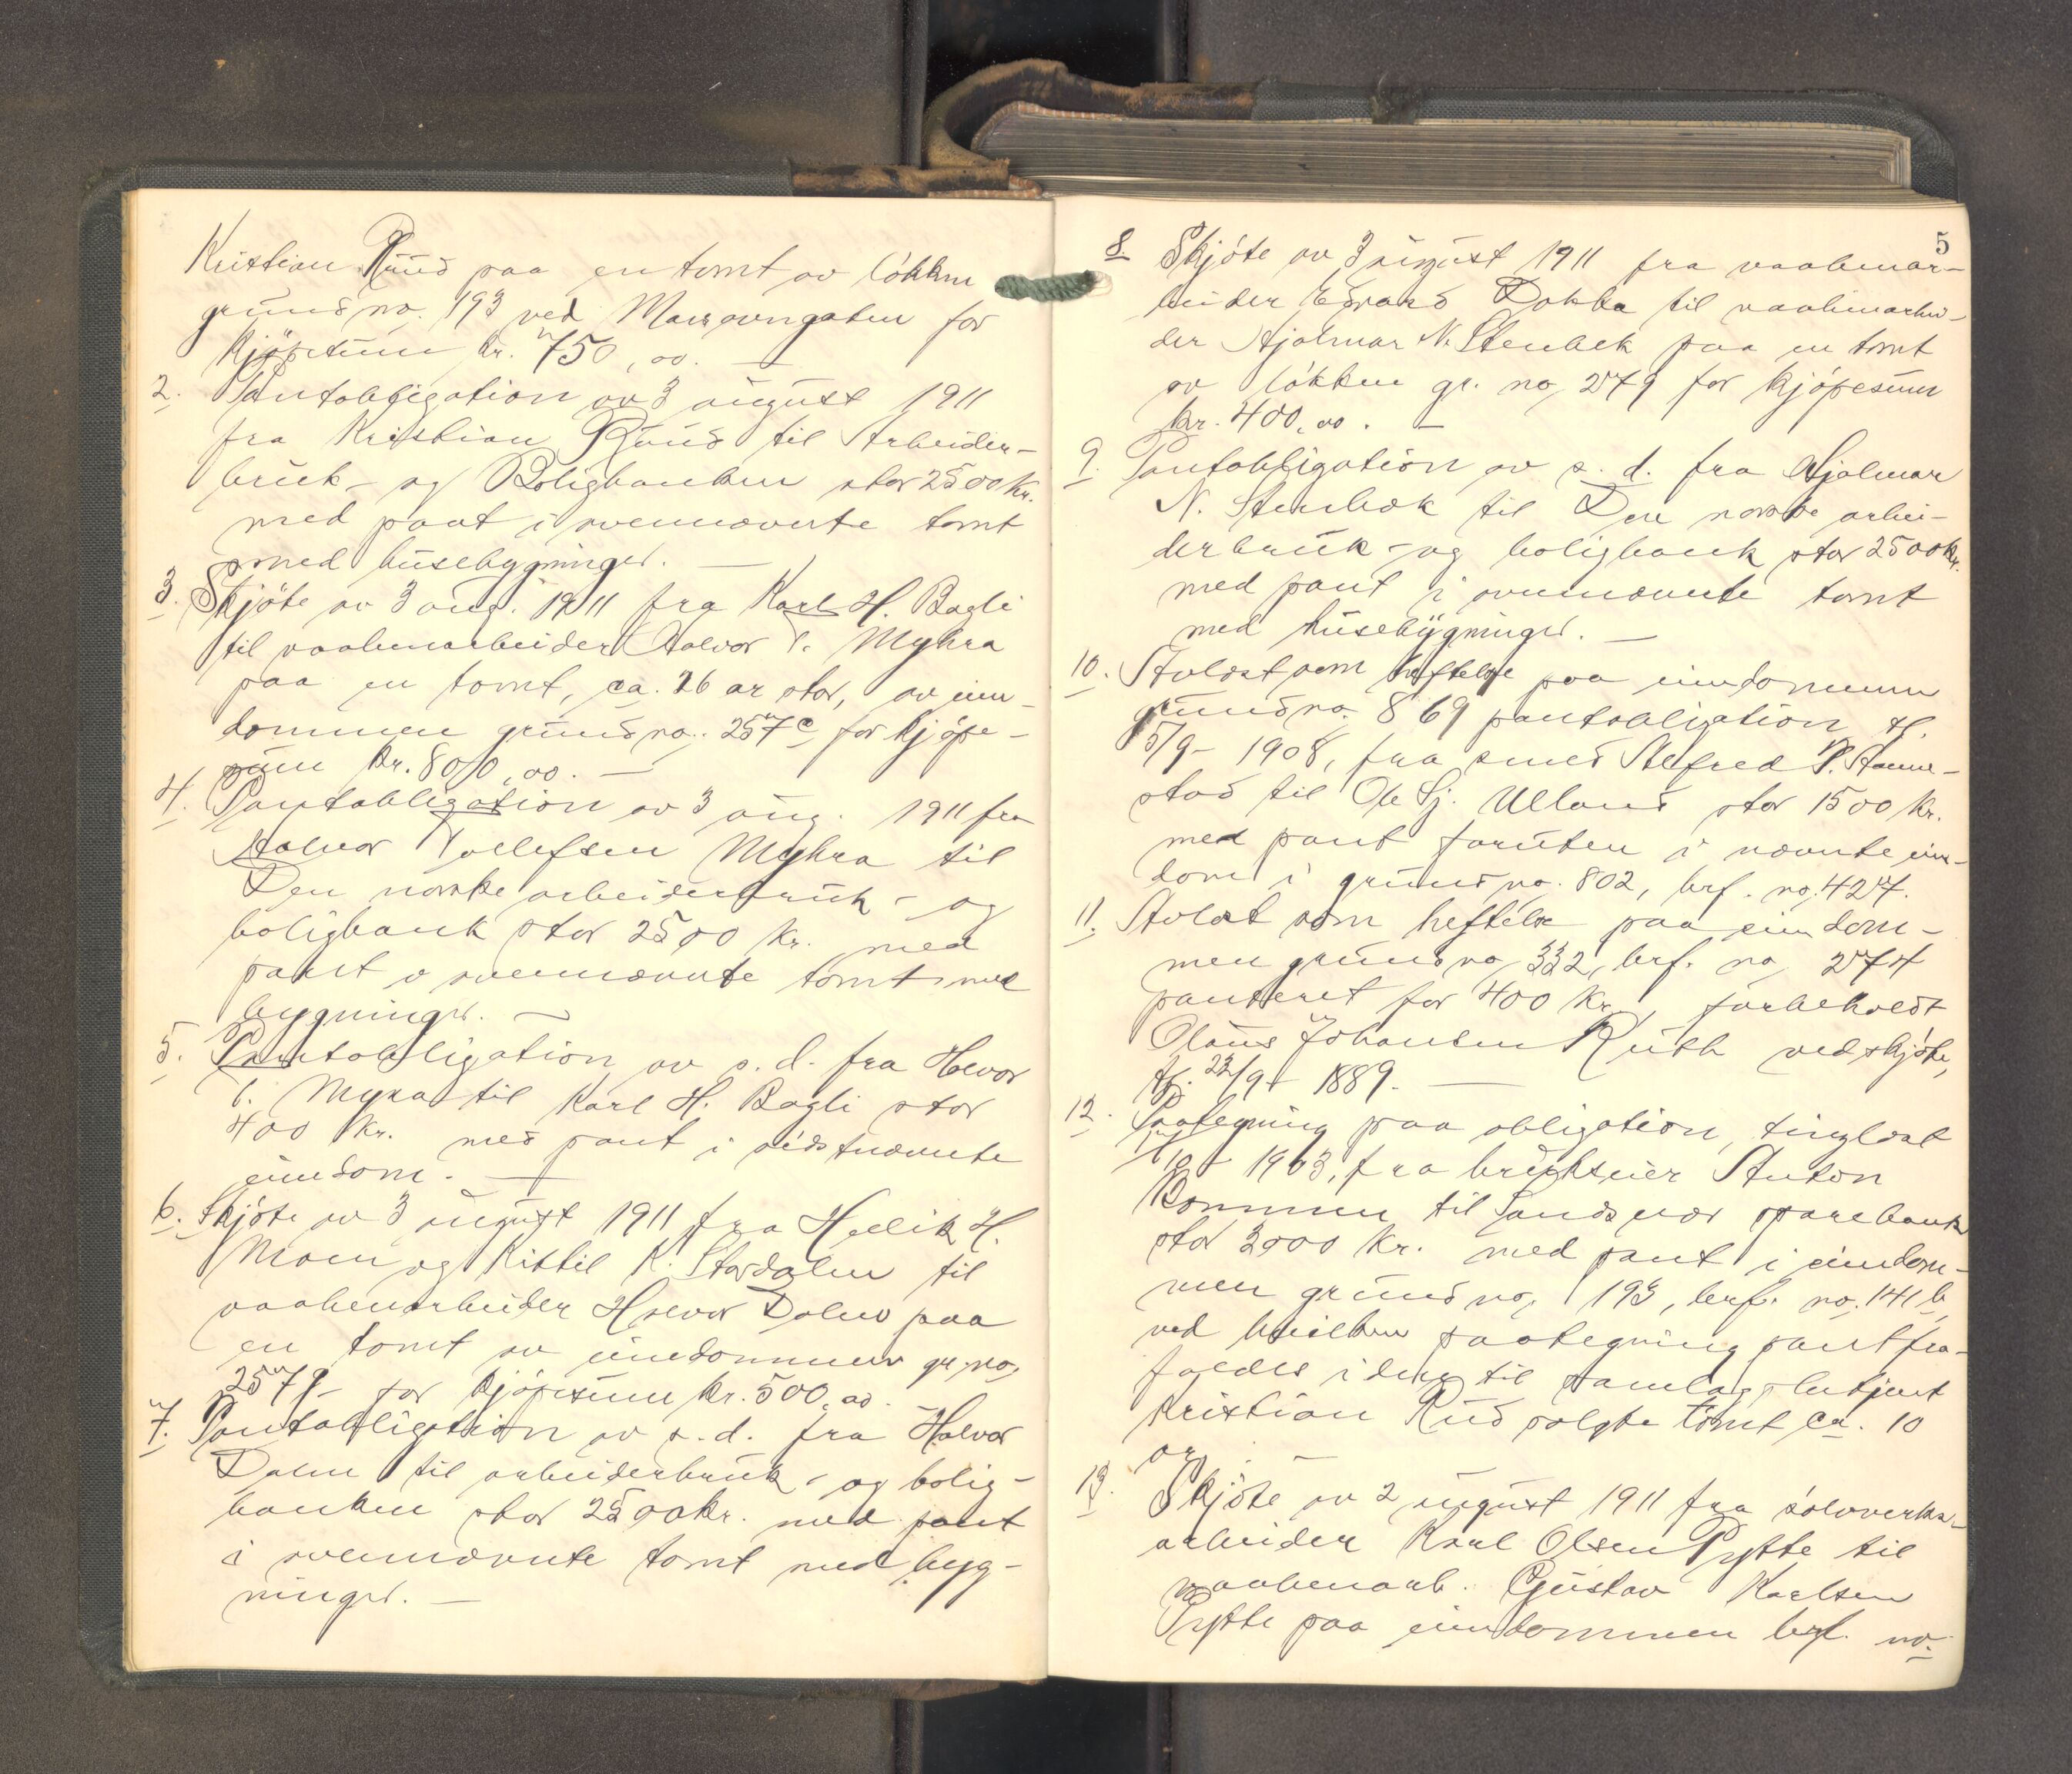 Kristian Ruud paa en tomt av løkken
grundno. 193 ved Masovngaten for
kjøpesum kr. 750,00. —
2. Pantobligation av 3 august 1911
fra Kristian Ruud til Arbeider-
bruk- og Boligbanken stor 2500 kr.
med pant i ovennævnte tomt
med husebygninger. —
3. Skjøte av 3 aug. 1911 fra Karl H. Bagli
til vaabenarbeider Halvor T. Myhra
paa en tomt, ca. 26 ar stor, av ein-
dommen grundno. 257c for kjøpe-
sum kr. 800,00. —
4. Pantobligation av 3 aug. 1911 fra
Halvor Tollefsen Myhra til
Den norske arbeiderbruk- og
boligbank stor 2500 kr. med
pant i ovennævnte tomt med
bygninger. —
5. Pantobligation av s. d. fra Halvor
T. Myra til Karl H. Bagli stor
400 kr. med pant i sidstnævnte
eiendom. —
6. Skjøte av 3 august 1911 fra Hellik H.
Moen og Kittil K. Stordalen til
vaabenarbeider Halvor Dalen paa
en tomt av eiendommen gr. no.
2579 for kjøpesum kr. 500,00.
7. Pantobligation av s. d. fra Halvor
Dalen til arbeiderbruk- og bolig-
banken stor 2500 kr. med pant
i ovennævnte tomt med byg-
ninger. —
5
8. Skjøte av 3 august 1911 fra vaabenar-
beider Edvard Dokka til vaabenarbei-
der Hjalmar N. Stenbek paa en tomt
av løkken gr. no. 279 for kjøpesum
kr. 400,00. —
9. Pantobligation av s. d. fra Hjalmar
N. Stenbæk til Den norske arbei-
derbruk- og boligbank stor 2500 kr.
med pant i ovennævnte tomt
med husebygninger. —
10. Avlæst som heftelse paa eiendommen
grundno. 869 pantobligation, tl.
15/9- 1908, fra smed Alfred P. Hanne-
stad til Ole Sj. Ulland stor 1500 kr.
med pant foruten i nævnte eien-
dom i grundno. 802, brf. no. 427.
11. Avlæst som heftelse paa eiendom-
men grundno. 332, brf. no. 274
panteret for 400 kr., forbeholdt
Olaus Johansen Ruth ved skjøte,
tl. 23/9- 1889. —
12. Paategning paa obligation, tinglæst
10- 1903, fra brukseier Anton
Kommen til Sandsvær sparebank
stor 3000 kr. med pant i eiendom-
men grundno. 193, brf. no. 141 b,
ved hvilken paategning pant fra-
faldes i den til samlagsbetjent
Kristian Ruud solgte tomt ca. 10
ar. —
13. Skjøte av 2 august 1911 fra sølvverks-
arbeider Karl Olsen Pytte til
vaabenarb. Gustav Karlsen
Pytte paa eiendommen brf. no.